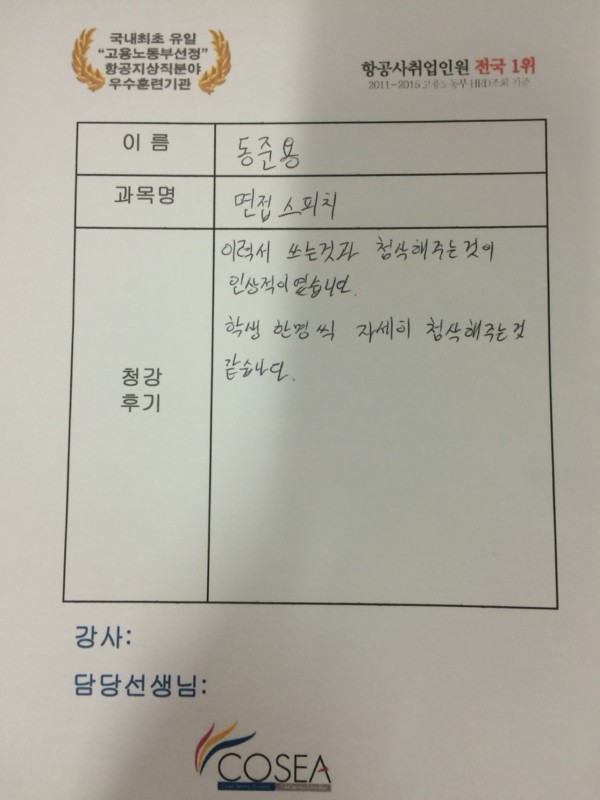 국내최초 유일
"고용노동부선정"
항공지상직분야
우수훈련기관
항공사취업인원 전국 1위
2011~2015고용노동부 HRD조회 기준
이 름
동준용
과목명
면접 스피치
청강
후기
이력서 쓰는것과 첨삭해주는것이
인상적이였습니다.
학생 한명 씩 자세히 첨삭해주는것
같습니다.
강사:
담당선생님:
COSEA